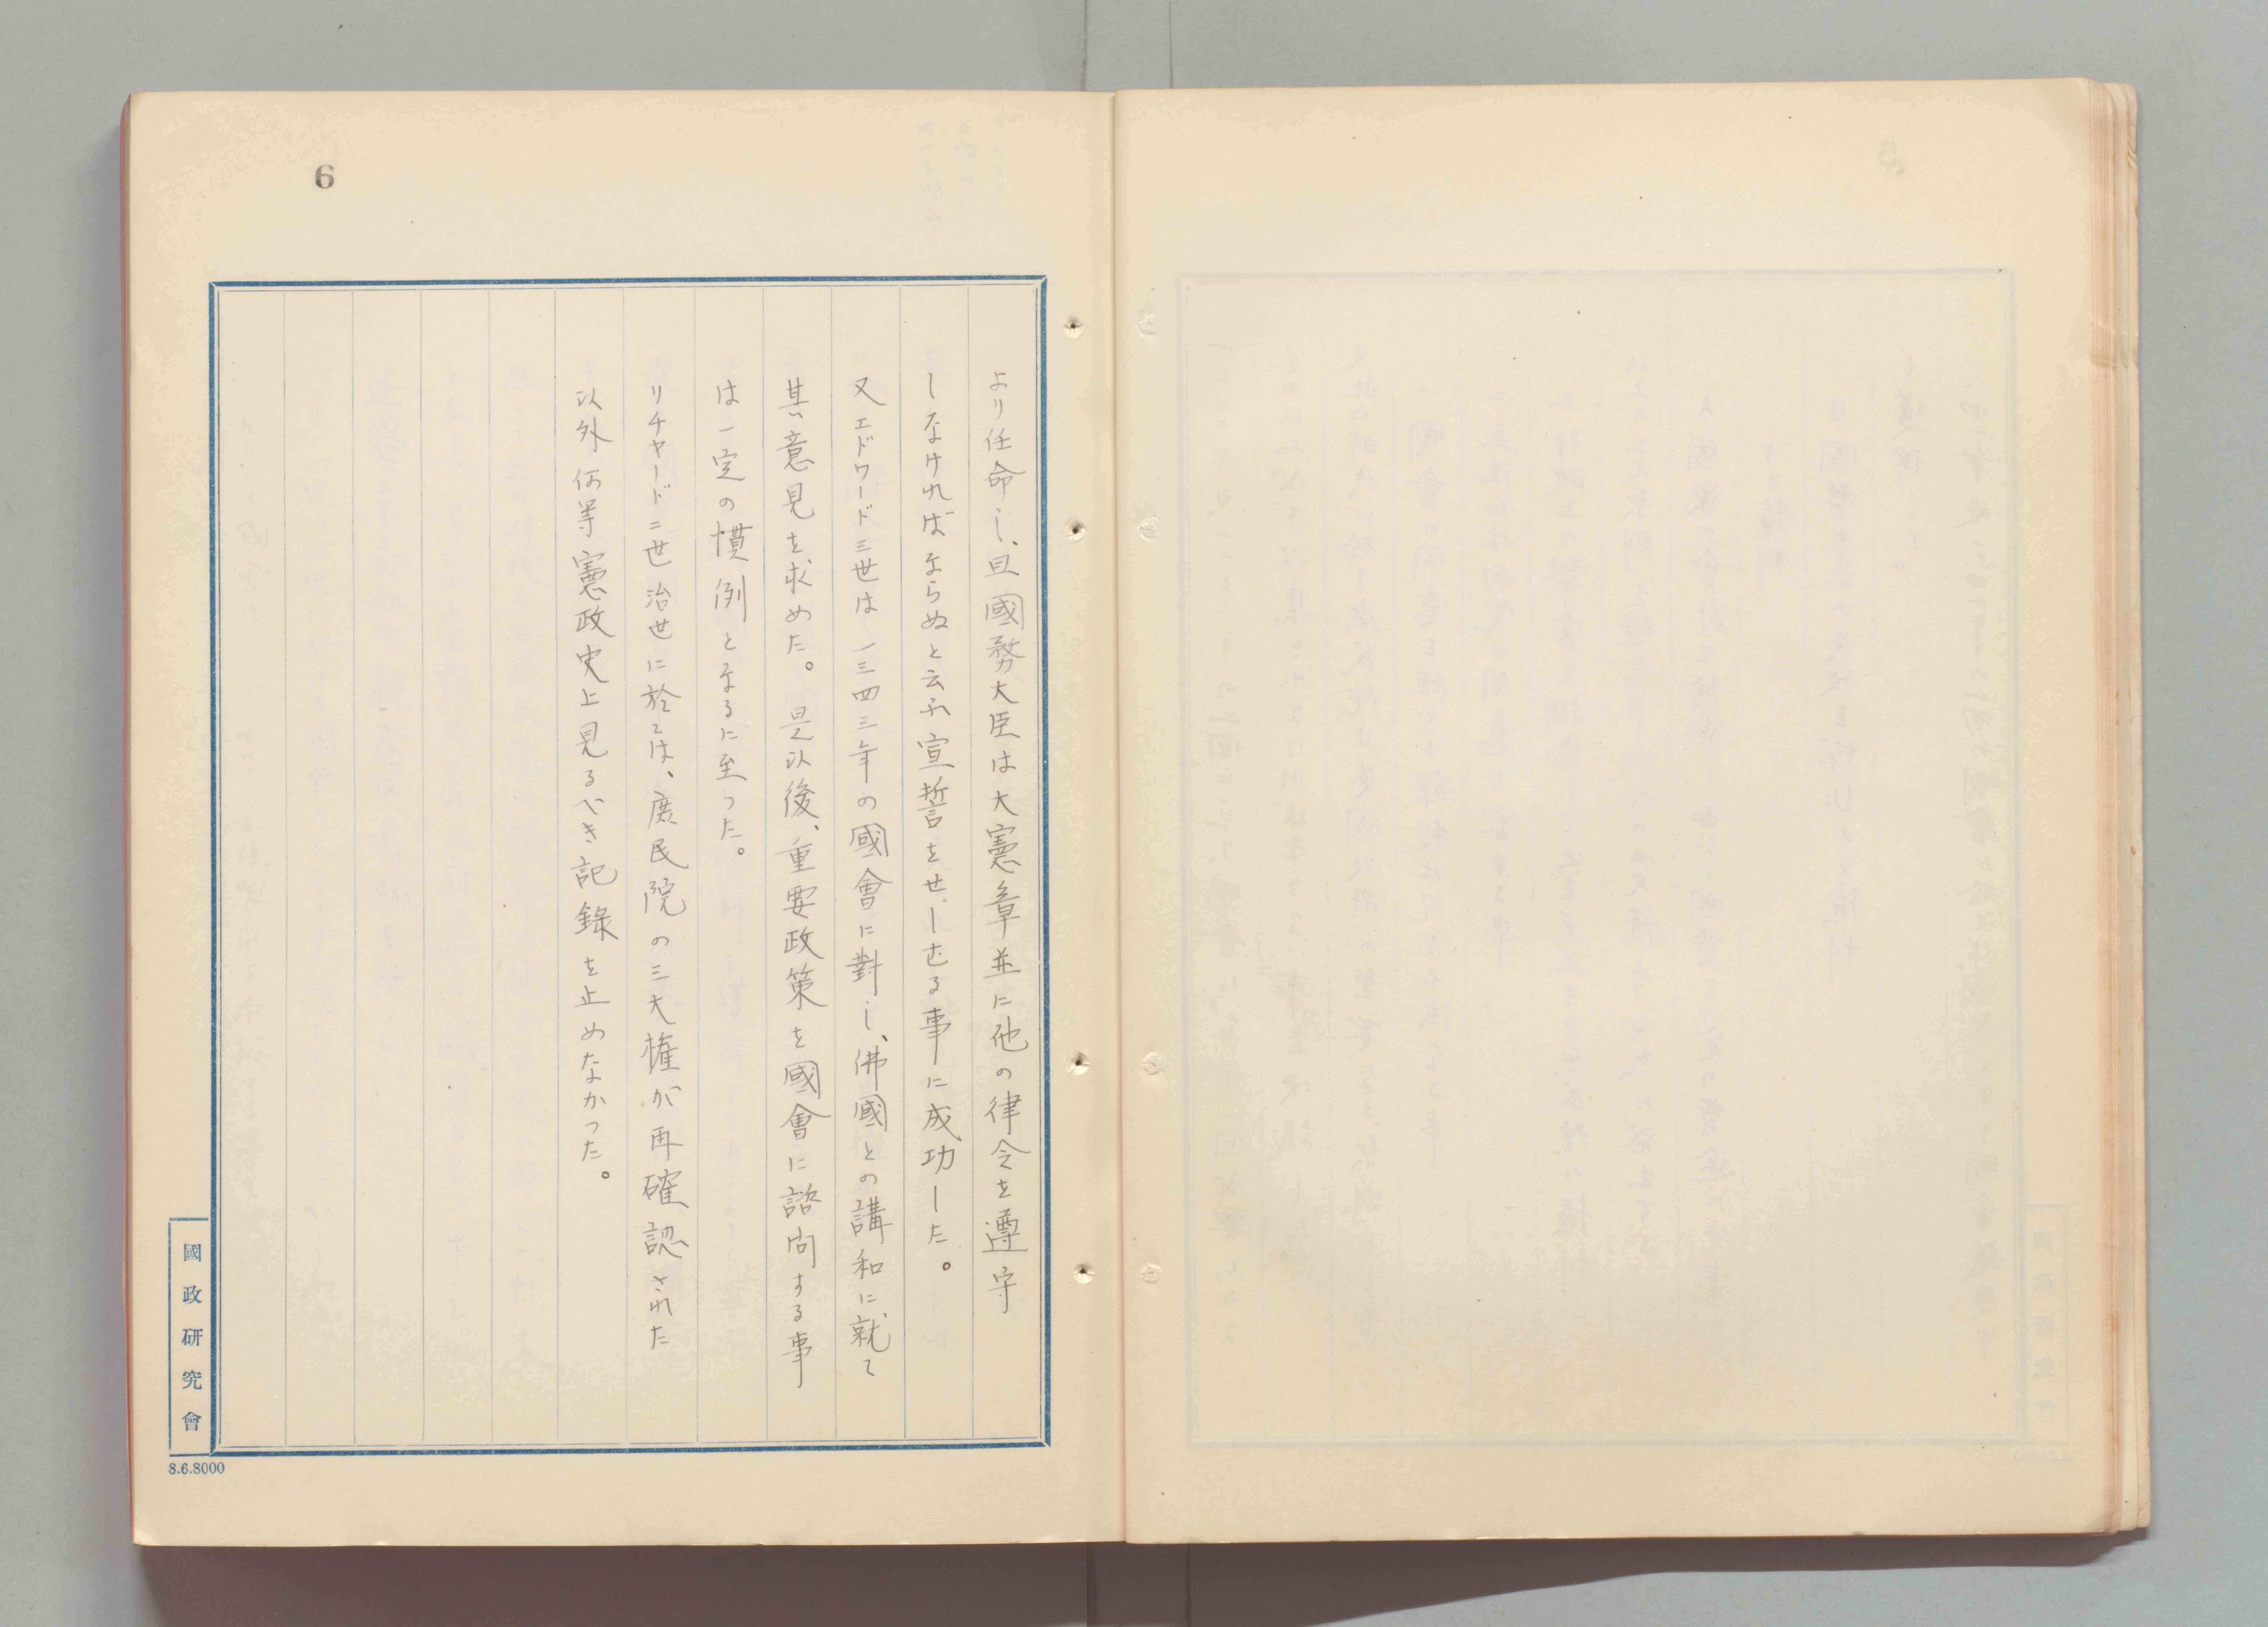 6
より任命し、且國務大臣は大憲章並に他の律令を遵守
しなければならぬと云ふ宣誓をせしむる事に成功した。
又エドワード三世は一三四三年の國會に對し、佛國との講和に就て
其意見を求めた。是以後、重要政策を國會に諮問する事
は一定の慣例となるに至った。
リチャード二世治世に於ては、庶民院の三大権が再確認された
以外何等憲政史上見るべき記錄を止めなかった。
國政研究會
8.6.8000